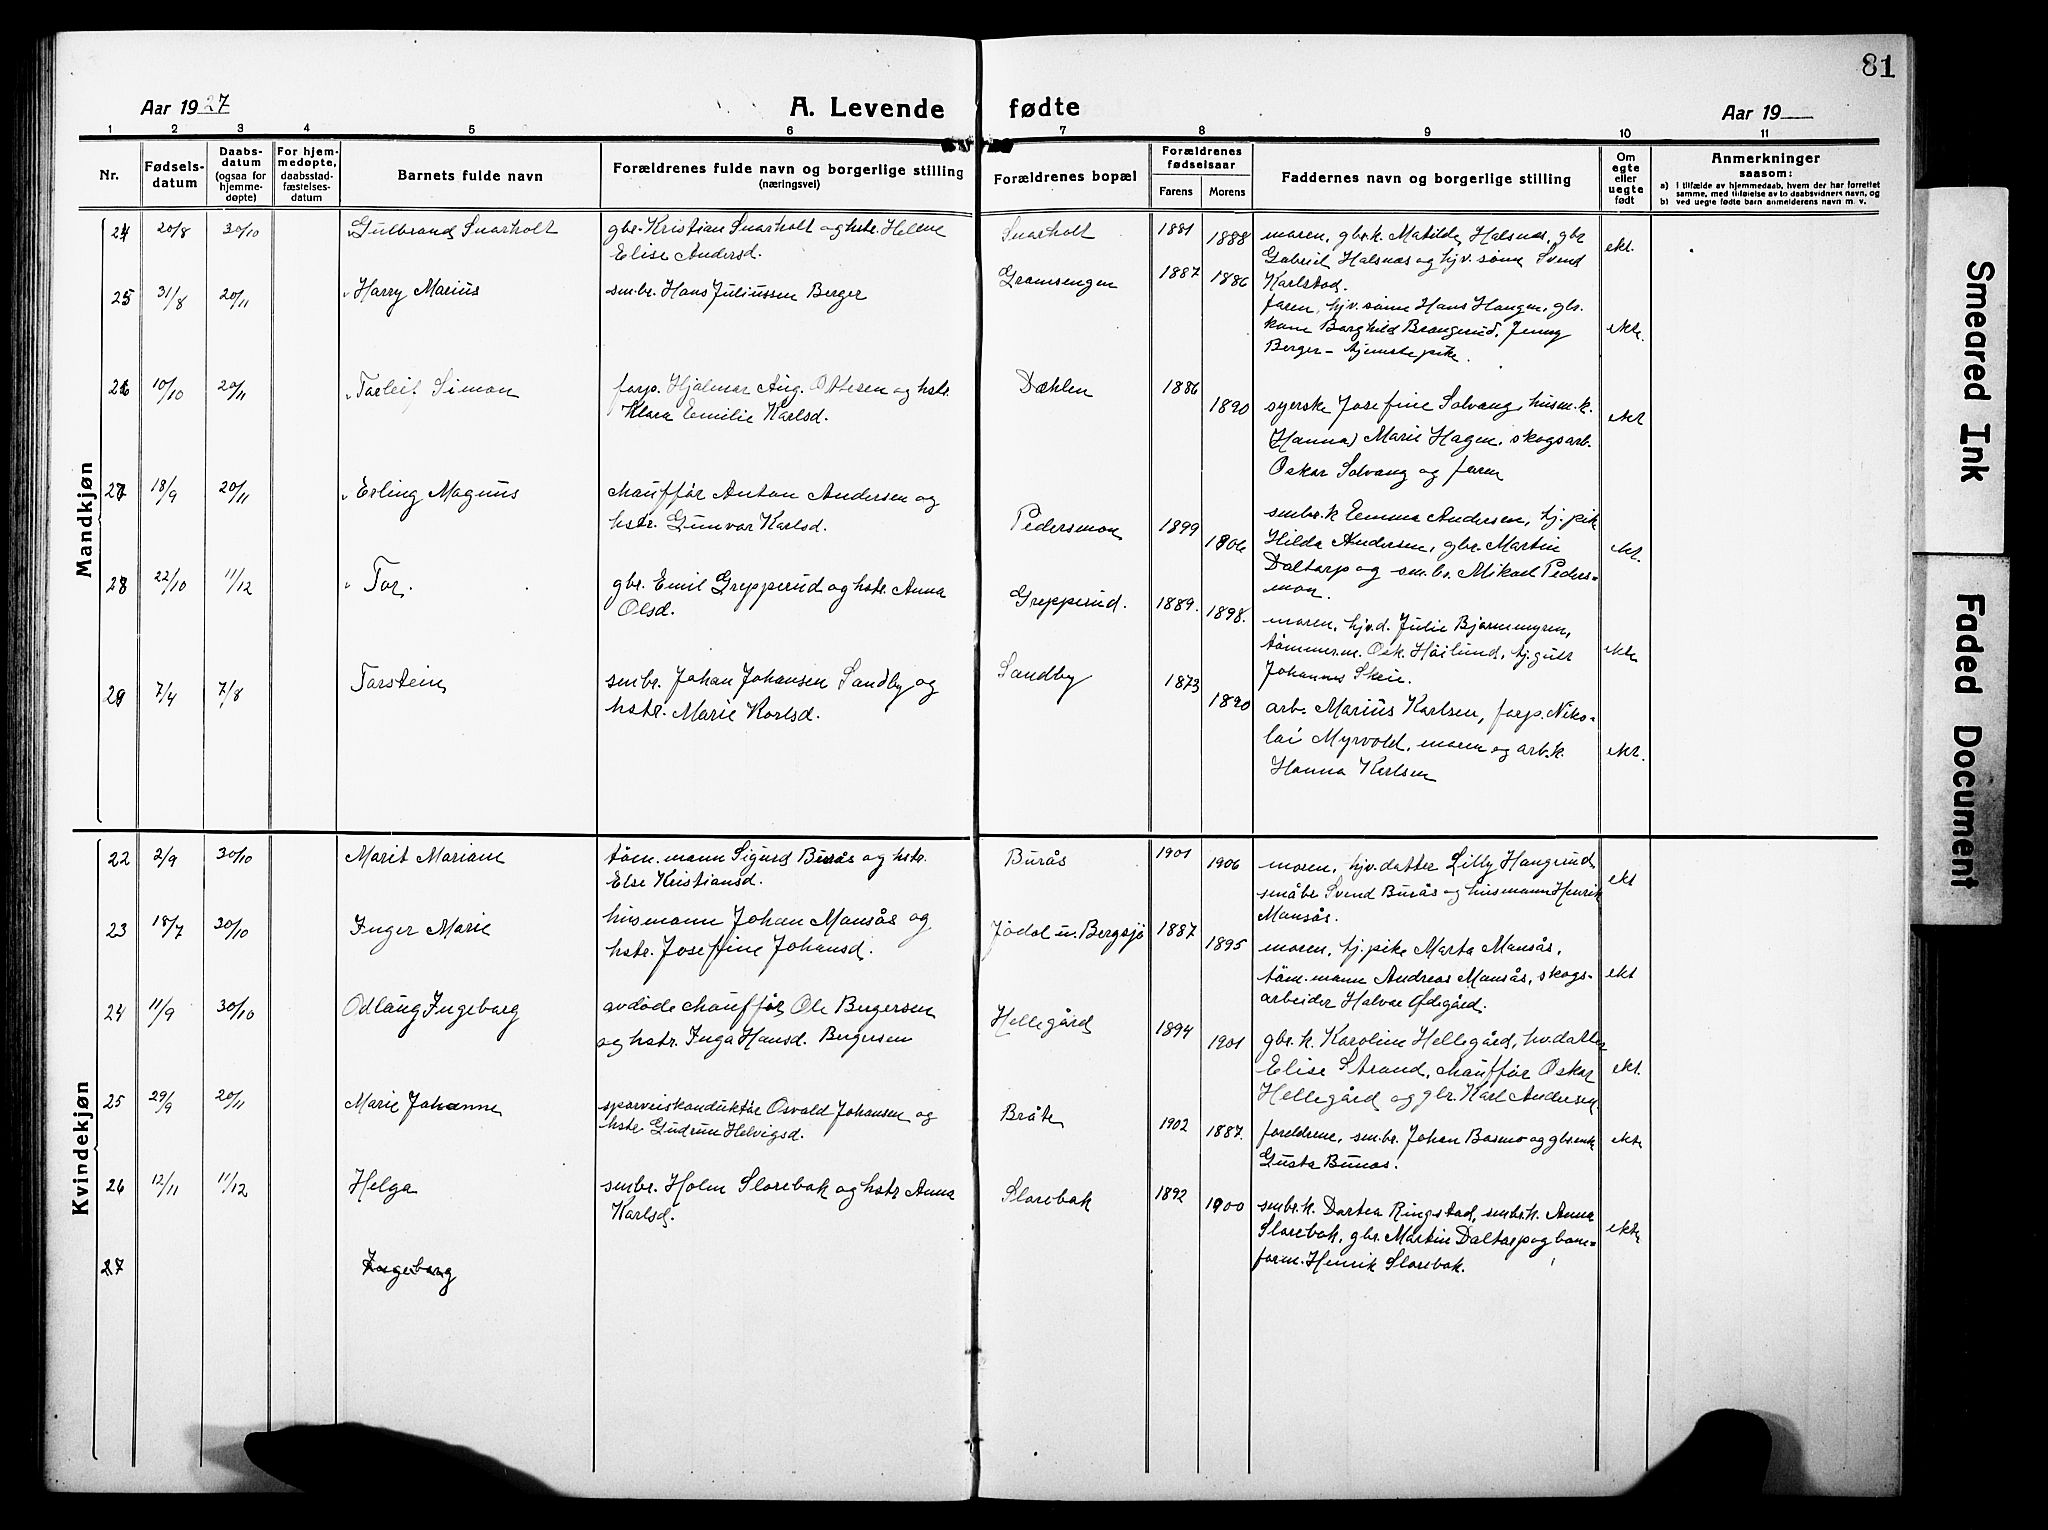 81
Aar 1927 A. Levende fødte Aar 19
1 2 3 4 5 6 7 8 9 10 11
Nr. Fødsels-datum Daabs-datum (ogsaa for hjemme-døpte) For hjem-medøpte, daabsstad-fæstelses-datum Barnets fulde navn Forældrenes fulde navn og borgerlige stilling (næringsvei) Forældrenes bopæl Forældrenes fødselsaar Farens Morens Faddernes navn og borgerlige stilling Om egte eller uegte født Anmerkninger saasom: a) i tilfælde av hjemmedaab, hvem der har forrettet samme, med tilføielse av to daabsvidners navn, og b) ved uegte fødte barn anmelderens navn m. v.
Mandkjøn
24 20/8 30/10 Gulbrand Snarholt gbr. Kristian Snarholt og hstr. Helene Snarholt 1881 1888 moren, gbr.k. Matilde Halsnæs, gbr ekt.
Elise Andersd. Gabriel Halsnæs og hjv. sønn Svend
Karlstad.
25 31/8 20/11 Harry Marius smbr. Hans Juliussen Berger Gramsengen 1887 1886 faren, hjv. sønn Hans Haugen, gbr. ekte.
kone Borghild Brangerud, Jenny
Berger - tjenstepike.
26 10/10 20/11 Torleif Simon forp. Hjalmar Aug. Ottesen og hstr. Dæhlen 1886 1890 syerske Josefine Solvang, husm.k. ekt
Klara Emilie Karlsd. (Hanna) Marie Hagen, skogsarb.
Oskar Solvang og faren
27 18/9 20/11 Erling Magnus chauffør Anton Andersen og Pedersmon 1899 1906 smbr.k Emma Andersen, tj. pik ekt.
hstr. Gunvor Karlsd. Hilda Andersen, gbr. Martin
Daltorp og sm.br. Mikael Peders-
mon.
28 22/10 11/12 Tor. gbr. Emil Grepperud og hstr. Anna Grepperud. 1889. 1898. moren, hjv.d. Julie Bjørnemyren, ekte
Olsd. tømmerm. Osk. Høilund, tj.gutt
Johannes Skeie.
29 7/4 7/8 Torstein smbr. Johan Johansen Sandby og Sandby 1873 1890 arb. Marius Karlsen, forp. Niko- ekt.
hstr. Marie Karlsd. lai Myrvold, moren og arb.k.
Hanna Karlsen
Kvindekjøn
22 2/9 30/10 Marit Mariane tøm.mann Sigurd Burås og hstr. Burås 1901 1906 moren, hjv.datter Lilly Haugerud ekt
Else Kristiansd. småbr Svend Burås og husmann Henrik
Mansås.
23 18/7 30/10 Inger Marie husmann Johan Mansås og Jødal u. Bergsjø 1887 1895 moren, tj.pike Marta Mansås, ekt
hstr. Josefine Johansd. tøm.mann Andreas Mansås, skogs-
arbeider Halvor Ødegård.
24 11/9 30/10 Odlaug Ingeborg avdøde chauffør Ole Bergersen Hellegård 1894 1901 gbr.k. Karoline Hellegård, hv.datter ekt.
og hstr. Inga Hansd. Bergersen Elise Strand, chauffør Oskar
Hellegård og gbr. Karl Andersen.
25 29/9 20/11 Marie Johanne sporveiskonduktør Osvald Johansen og Bråte 1902 1887. foreldrene, sm.br. Johan Bosmo og gbrenk ekte
hstr Gudrun Helvigsd. Gusta Bunæs.
26 12/11 11/12 Helga smbr. Holm Slorebak og hstr Anna Slorebak 1892 1900 smbr.k. Dortea Ringstad, smbr.k. Anna ekte
Karlsd. Slorebak, gbr. Martin Daltorp og bane-
form. Henrik Slorebak.
27 Ingeborg
Smeared Ink
Faded Document